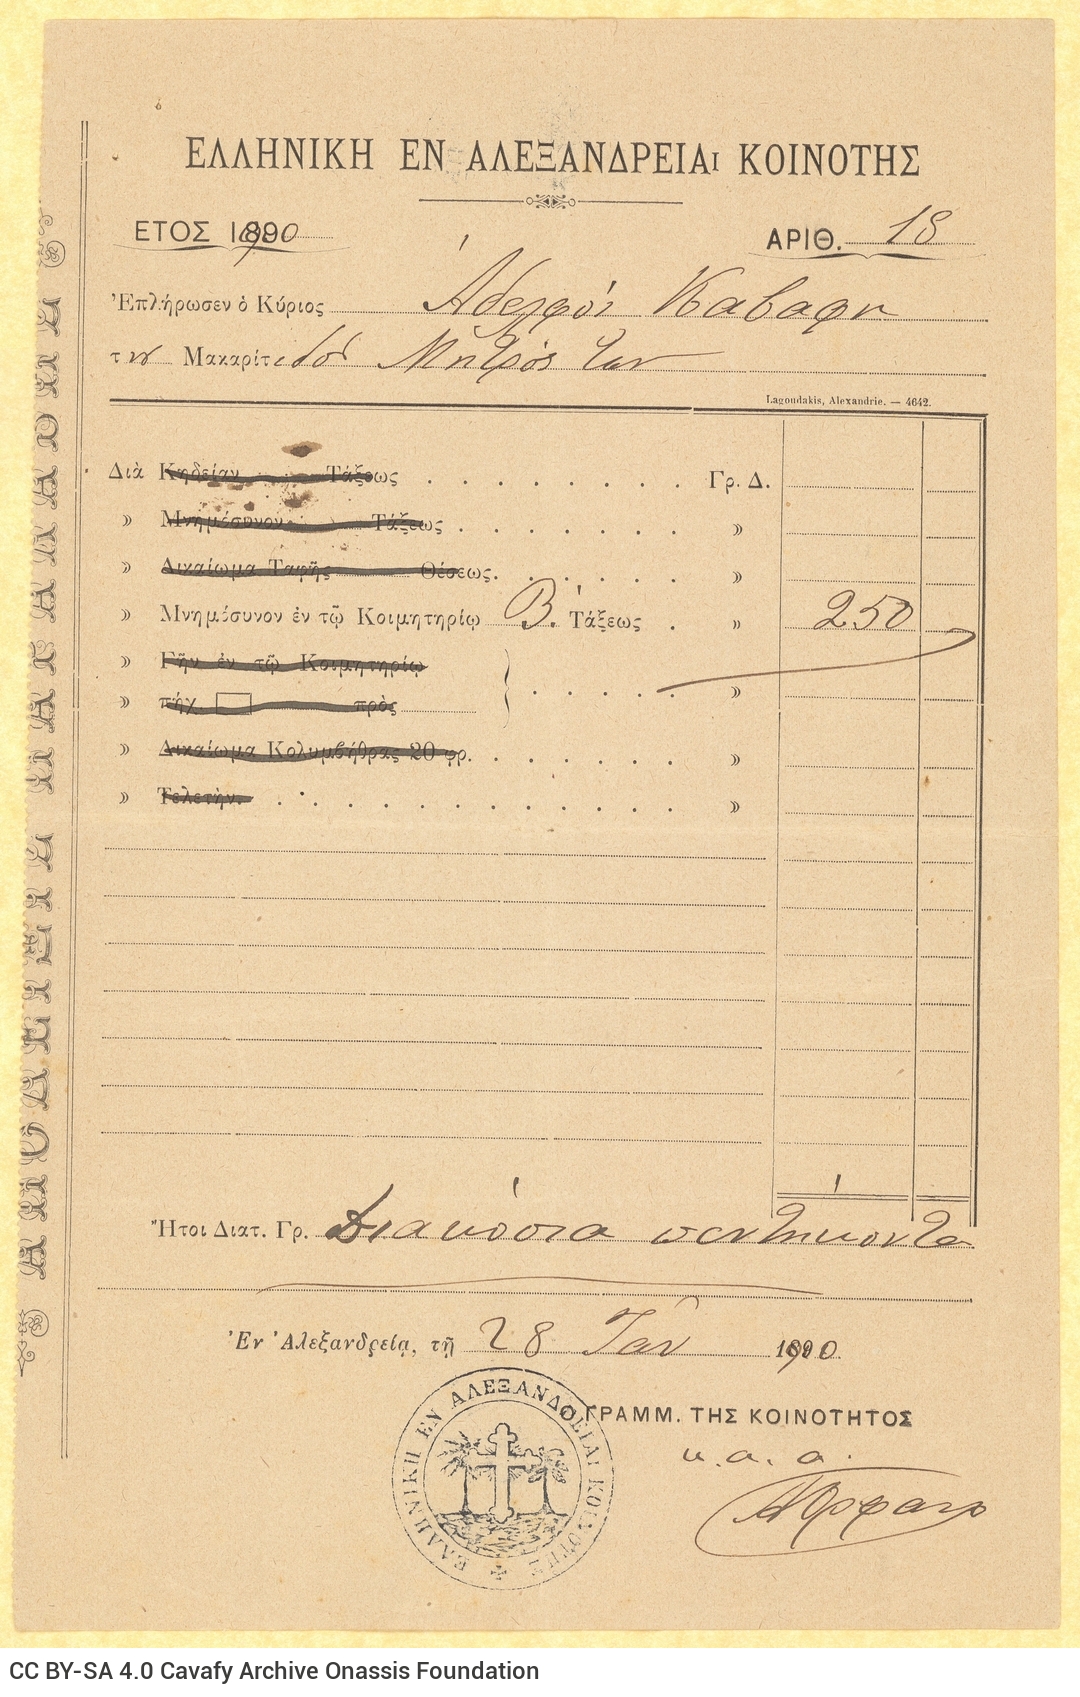 ΕΛΛΗΝΙΚΗ ΕΝ ΑΛΕΞΑΝΔΡΕΙΑι ΚΟΙΝΟΤΗΣ
ΕΤΟΣ 1890
ΑΡΙΘ. 18
Ἐπλήρωσεν ὁ Κύριος Ἀδελφοὶ Καβαφη
της Μακαρίτιδος Μητρός των
Lagoudakis, Alexandrie. — 4642.
Διὰ Κηδείαν Τάξεως Γρ. Δ.
» Μνημόσυνον Τάξεως »
» Δικαίωμα Ταφῆς Θέσεως. »
» Μνημόσυνον ἐν τῷ Κοιμητηρίῳ Β. Τάξεως » 250
» Γῆν ἐν τῷ Κοιμητηρίῳ
» πήχ. πρὸς »
» Δικαίωμα Κολυμβήθρας 20 φρ. »
» Τελετὴν. »
Ἤτοι Διατ. Γρ. Διακόσια πεντήκοντα
Ἐν Ἀλεξανδρείᾳ, τῇ 28 Ἰαν 1890.
Ο ΓΡΑΜΜ. ΤΗΣ ΚΟΙΝΟΤΗΤΟΣ
κ. α. α.
ΕΛΛΗΝΙΚΗ ΕΝ ΑΛΕΞΑΝΔΡΕΙΑΙ ΚΟΙΝΟΤΗΣ
CC BY-SA 4.0 Cavafy Archive Onassis Foundation